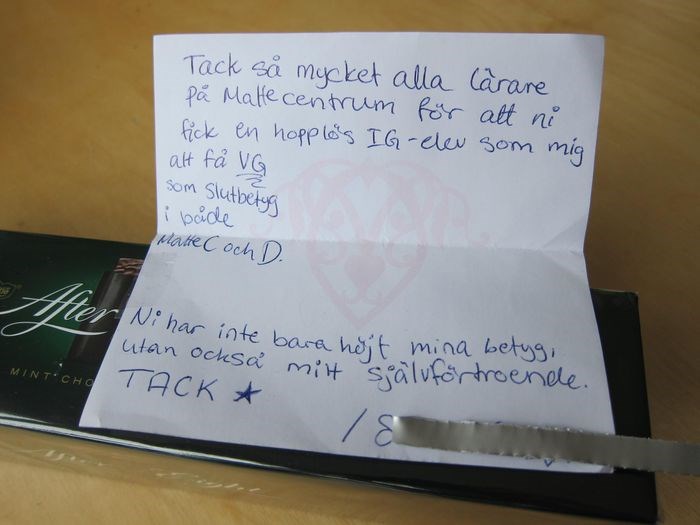 Tack så mycket alla lärare
på Mattecentrum för att ni
fick en hopplös IG-elev som mig
att få VG
som slutbetyg
i både
Matte C och D.
Ni har inte bara höjt mina betyg,
utan också mitt självförtroende.
TACK ★
/ S
After
MINT CHO